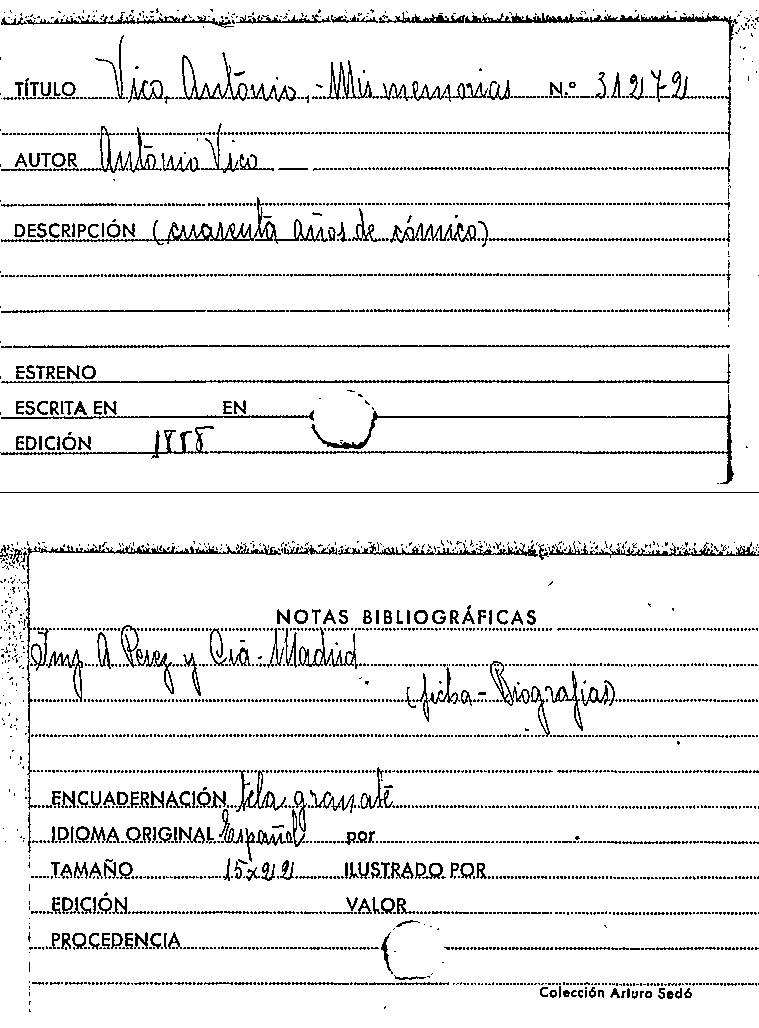 TÍTULO Vico, Antonio, - Mis memorias N.º 31272
AUTOR Antonio Vico
DESCRIPCIÓN (cuarenta años de cómico)
ESTRENO
ESCRITA EN EN
EDICIÓN 1888
NOTAS BIBLIOGRÁFICAS
Imp A Perez y Cia - Madrid
(ficha - Biografias)
ENCUADERNACIÓN tela granate
IDIOMA ORIGINAL Español por
TAMAÑO 15x22 ILUSTRADO POR
EDICIÓN VALOR
PROCEDENCIA
Colección Arturo Sedó